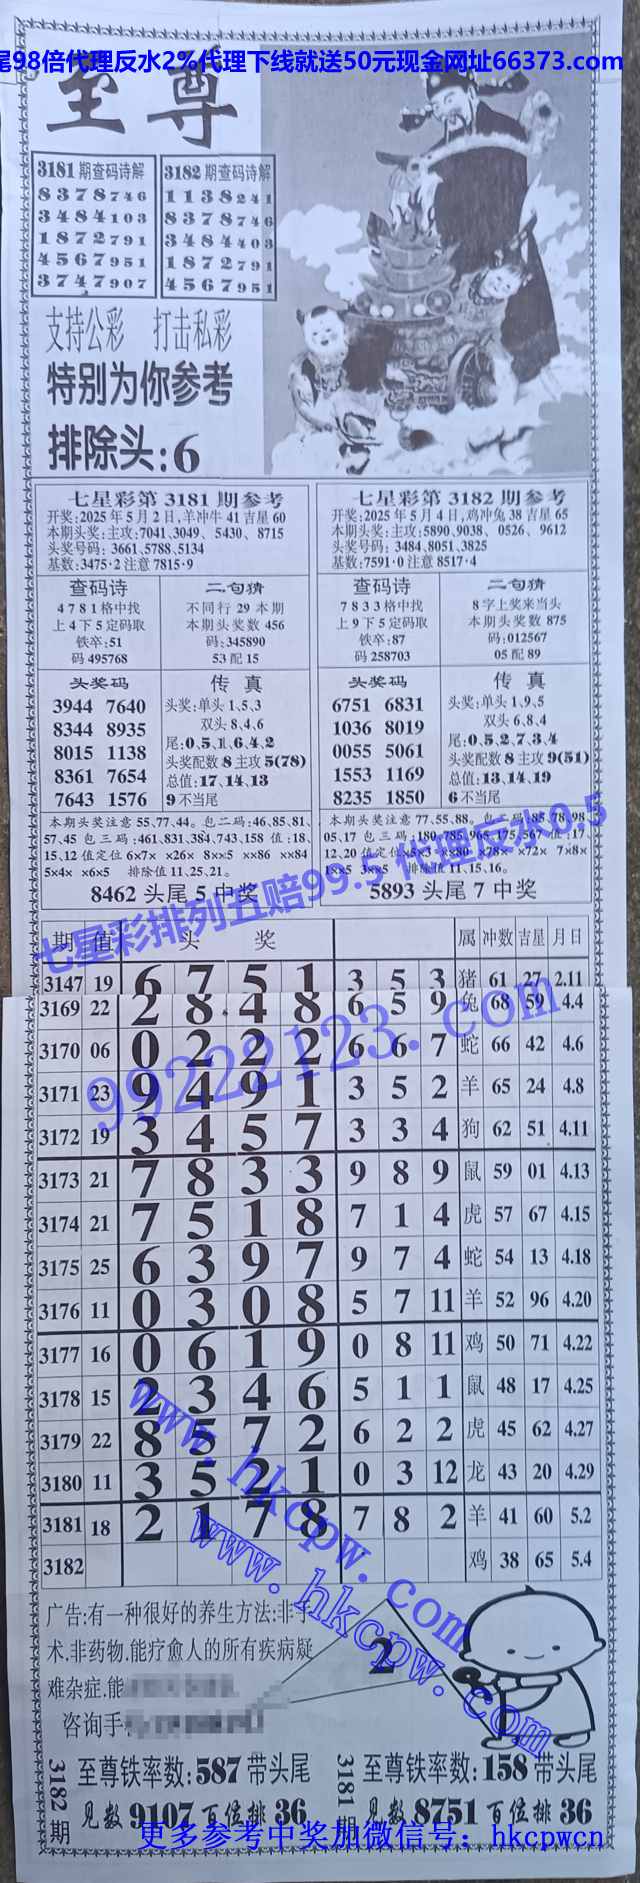 尾98倍代理反水2%代理下线就送50元现金网址66373.com
至尊
3181期查码诗解
8378746
3484103
1872791
4567951
3747907
3182期查码诗解
1138241
8378746
3484403
1872791
4567951
支持公彩 打击私彩
特别为你参考
排除头:6
七星彩第3181期参考
开奖:2025年5月2日,羊冲牛41吉星60
本期头奖:主攻:7041、3049、5430、8715
头奖号码:3661、5788、5134
基数:3475·2注意7815·9
查码诗
4781格中找
上4下5定码取
铁卒:51
码495768
二句猜
不同行29本期
本期头奖数456
码:345890
53配15
头奖码
3944 7640
8344 8935
8015 1138
8361 7654
7643 1576
传真
头奖:单头1、5、3
双头8、4、6
尾:0、5、1、6、4、2
头奖配数8主攻5(78)
总值:17、14、13
9不当尾
本期头奖注意55、77、44。包二码:46、85、81、
57、45包三码:461、831、384、743、158值:18、
15、12值定位6×7× ×26× 8××5 ××86 ××84
5×4× ×6×5 排除值11、25、21。
8462头尾5中奖
七星彩第3182期参考
开奖:2025年5月4日,鸡冲兔38吉星65
本期头奖:主攻:5890、9038、0526、9612
头奖号码:3484、8051、3825
基数:7591·0注意8517·4
查码诗
7833格中找
上9下5定码取
铁卒:87
码258703
二句猜
8字上奖来当头
本期头奖数875
码:012567
05配89
头奖码
6751 6831
1036 8019
0055 5061
1553 1169
8235 1850
传真
头奖:单头1、9、5
双头6、8、4
尾:0、5、2、7、3、4
头奖配数8主攻9(51)
总值:13、14、19
6不当尾
本期头奖注意77、55、88。包二码:85、78、98、
05、17包三码:180、785、965、175、567值:17、
12、20值定位×5×3 ××80 ×78× ×72× 7×8×
1××5 3××5 排除值11、15、16。
5893头尾7中奖
七星彩排列五赔99.5 代理反水0.5
期 值 头 奖 属 冲数 吉星 月日
3147 19 6 7 5 1 3 5 3 猪 61 27 2.11
3169 22 2 8 4 8 6 5 9 兔 68 59 4.4
3170 06 0 2 2 2 6 6 7 蛇 66 42 4.6
3171 23 9 4 9 1 3 5 2 羊 65 24 4.8
3172 19 3 4 5 7 3 3 4 狗 62 51 4.11
3173 21 7 8 3 3 9 8 9 鼠 59 01 4.13
3174 21 7 5 1 8 7 1 4 虎 57 67 4.15
3175 25 6 3 9 7 9 7 4 蛇 54 13 4.18
3176 11 0 3 0 8 5 7 11 羊 52 96 4.20
3177 16 0 6 1 9 0 8 11 鸡 50 71 4.22
3178 15 2 3 4 6 5 1 1 鼠 48 17 4.25
3179 22 8 5 7 2 6 2 2 虎 45 62 4.27
3180 11 3 5 2 1 0 3 12 龙 43 20 4.29
3181 18 2 1 7 8 7 8 2 羊 41 60 5.2
3182 鸡 38 65 5.4
99222123.com
www.hkcpw.com
www.hkcpw.com
广告:有一种很好的养生方法:非手
术,非药物,能疗愈人的所有疾病疑
难杂症,能
咨询手
2
1
3182期
至尊铁率数:587带头尾
见数9107百位排36
3181期
至尊铁率数:158带头尾
见数8751百位排36
更多参考中奖加微信号:hkcpwcn